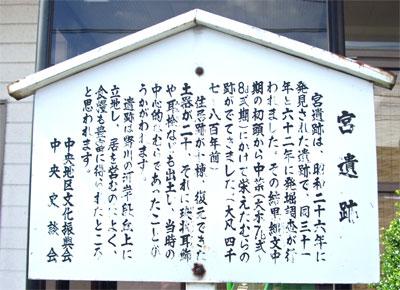 宮遺跡
宮遺跡は、昭和二十六年に
発見された遺跡で、同三十一
年と六十二年に発掘調査が行
われました。その結果縄文中
期の初頭から中葉
期)にかけて栄えたむらの
跡がでてきました。(大凡四千
七~八百年前)
住居跡が 棟、復元できた
土器が二十 それに
や耳栓なども出土し、当時の
中心的なむらであったことが
うかがわれます。
遺跡は 川の河岸段丘上に
立地し、居を営むのによく、
食糧も豊富に得られたところ
と思われます。
中央地区文化振興会
中央史談会